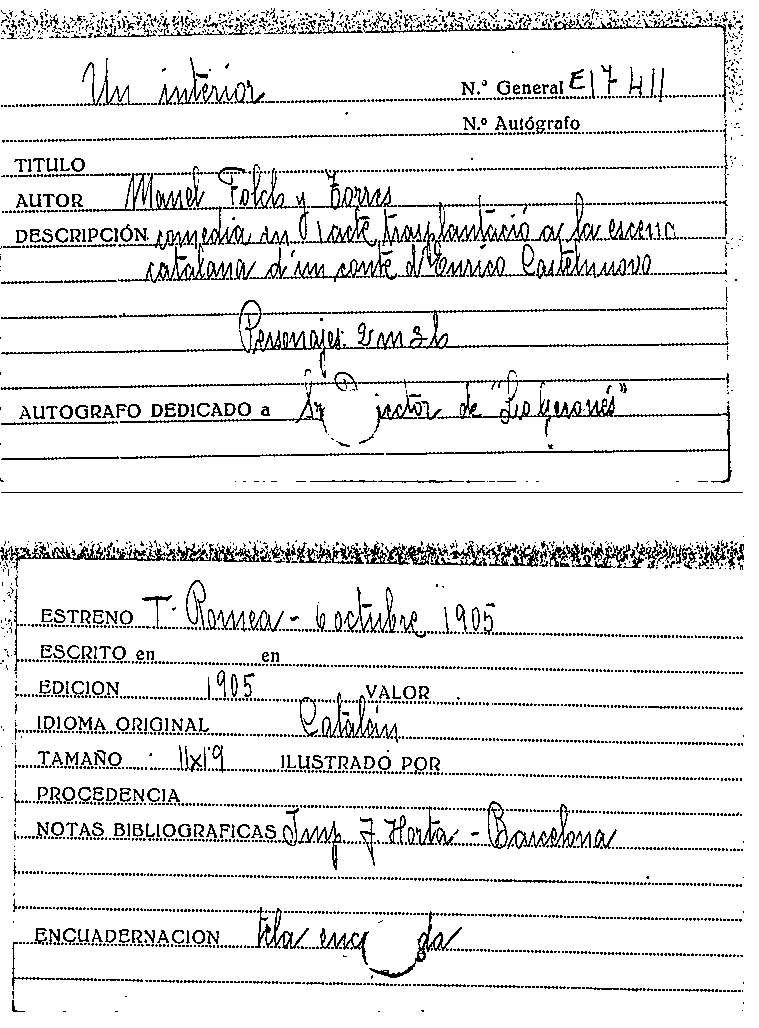 Un interior N.º General E17411
N.º Autógrafo
TITULO
AUTOR Manel Folch y Torres
DESCRIPCIÓN comedia en 1 acte, trasplantació a la escena
catalana d'un conte d'Enrico Castelnuovo
Personajes: 2 m 3 h
AUTOGRAFO DEDICADO a Sr Director de "Lo Geronés"
ESTRENO T. Romea - 6 octubre 1905
ESCRITO en en
EDICION 1905 VALOR
IDIOMA ORIGINAL Catalán
TAMAÑO 11x19 ILUSTRADO POR
PROCEDENCIA
NOTAS BIBLIOGRAFICAS Imp. J. Horta - Barcelona
ENCUADERNACION tela